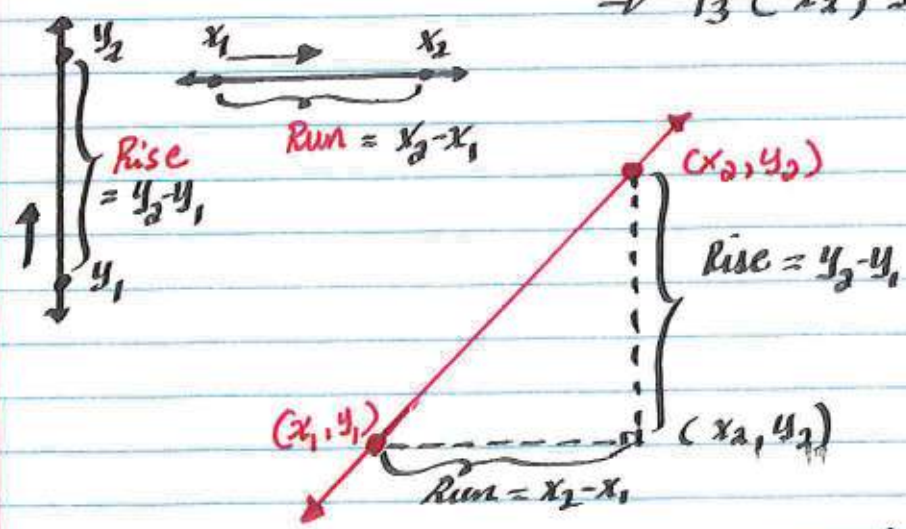 y₂
x₁ x₂
Run = x₂-x₁
Rise
= y₂-y₁
y₁
(x₂, y₂)
Rise = y₂-y₁
(x₁, y₁)
(x₂, y₂)
Run = x₂-x₁